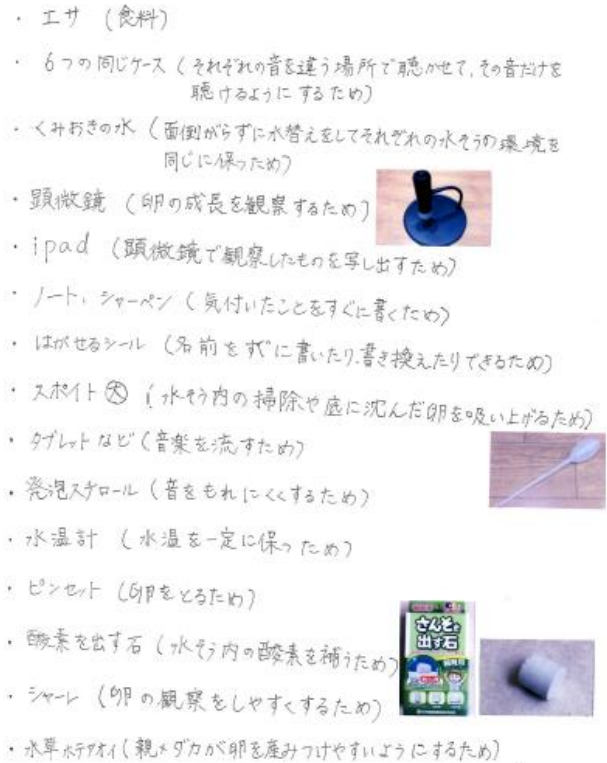 ・ エサ (食料)
・ 6つの同じケース (それぞれの音を違う場所で聴かせて、その音だけを
聴けるようにするため)
・ くみおきの水 (面倒がらずに水替えをしてそれぞれの水そうの環境を
同じに保つため)
・ 顕微鏡 (卵の成長を観察するため)
・ ipad (顕微鏡で観察したものを写し出すため)
・ ノート、シャーペン (気付いたことをすぐに書くため)
・ はがせるシール (名前をすぐに書いたり、書き換えたりできるため)
・ スポイト 大 (水そう内の掃除や底に沈んだ卵を吸い上げるため)
・ タブレットなど (音楽を流すため)
・ 発泡スチロール (音をもれにくくするため)
・ 水温計 (水温を一定に保つため)
・ ピンセット (卵をとるため)
さんそを
出す石
・ 酸素を出す石 (水そう内の酸素を補うため)
・ シャーレ (卵の観察をしやすくするため)
・ 水草 ホテアオイ (親メダカが卵を産みつけやすいようにするため)